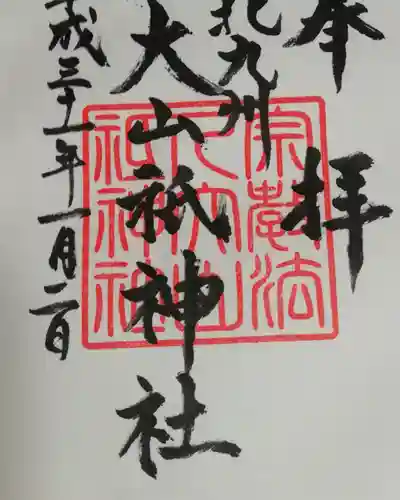 奉拝
北九州
大山祇神社
平成三十一年一月二日
宗教法
人大山
祗神社